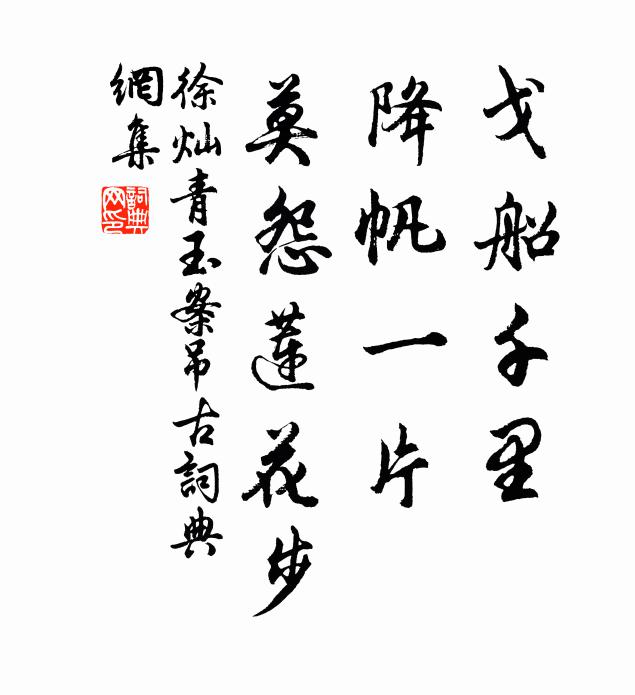 戈船千里
降帆一片
莫怨蓮花步
徐灿青玉案吊古詞典
網集
詞典
网印